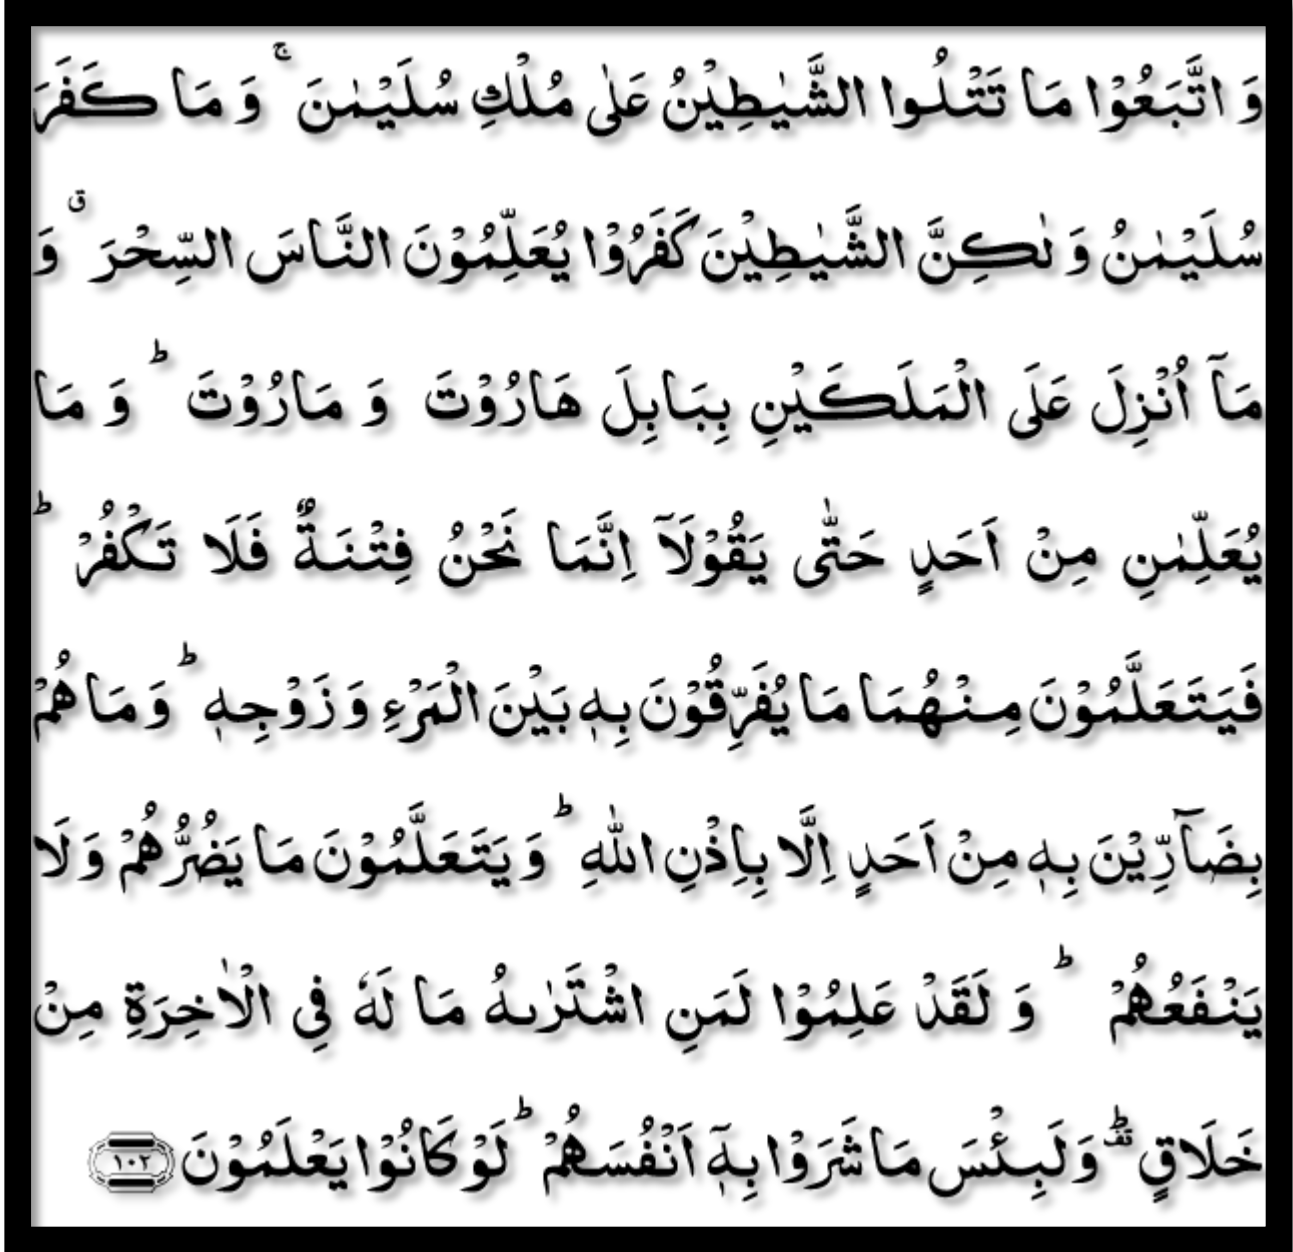 وَ اتَّبَعُوْا مَا تَتْلُوا الشَّیٰطِیْنُ عَلٰی مُلْكِ سُلَیْمٰنَ ۚ وَ مَا كَفَرَ
سُلَیْمٰنُ وَ لٰكِنَّ الشَّیٰطِیْنَ كَفَرُوْا یُعَلِّمُوْنَ النَّاسَ السِّحْرَ ۗ وَ
مَاۤ اُنْزِلَ عَلَی الْمَلَكَیْنِ بِبَابِلَ هَارُوْتَ وَ مَارُوْتَ ؕ وَ مَا
یُعَلِّمٰنِ مِنْ اَحَدٍ حَتّٰی یَقُوْلَاۤ اِنَّمَا نَحْنُ فِتْنَةٌ فَلَا تَكْفُرْ ؕ
فَیَتَعَلَّمُوْنَ مِنْهُمَا مَا یُفَرِّقُوْنَ بِهٖ بَیْنَ الْمَرْءِ وَ زَوْجِهٖ ؕ وَ مَا هُمْ
بِضَآرِّیْنَ بِهٖ مِنْ اَحَدٍ اِلَّا بِاِذْنِ اللّٰهِ ؕ وَ یَتَعَلَّمُوْنَ مَا یَضُرُّهُمْ وَ لَا
یَنْفَعُهُمْ ؕ وَ لَقَدْ عَلِمُوْا لَمَنِ اشْتَرٰىهُ مَا لَهٗ فِی الْاٰخِرَةِ مِنْ
خَلَاقٍ ۫ؕ وَ لَبِئْسَ مَا شَرَوْا بِهٖۤ اَنْفُسَهُمْ ؕ لَوْ كَانُوْا یَعْلَمُوْنَ ﴿۱۰۲﴾